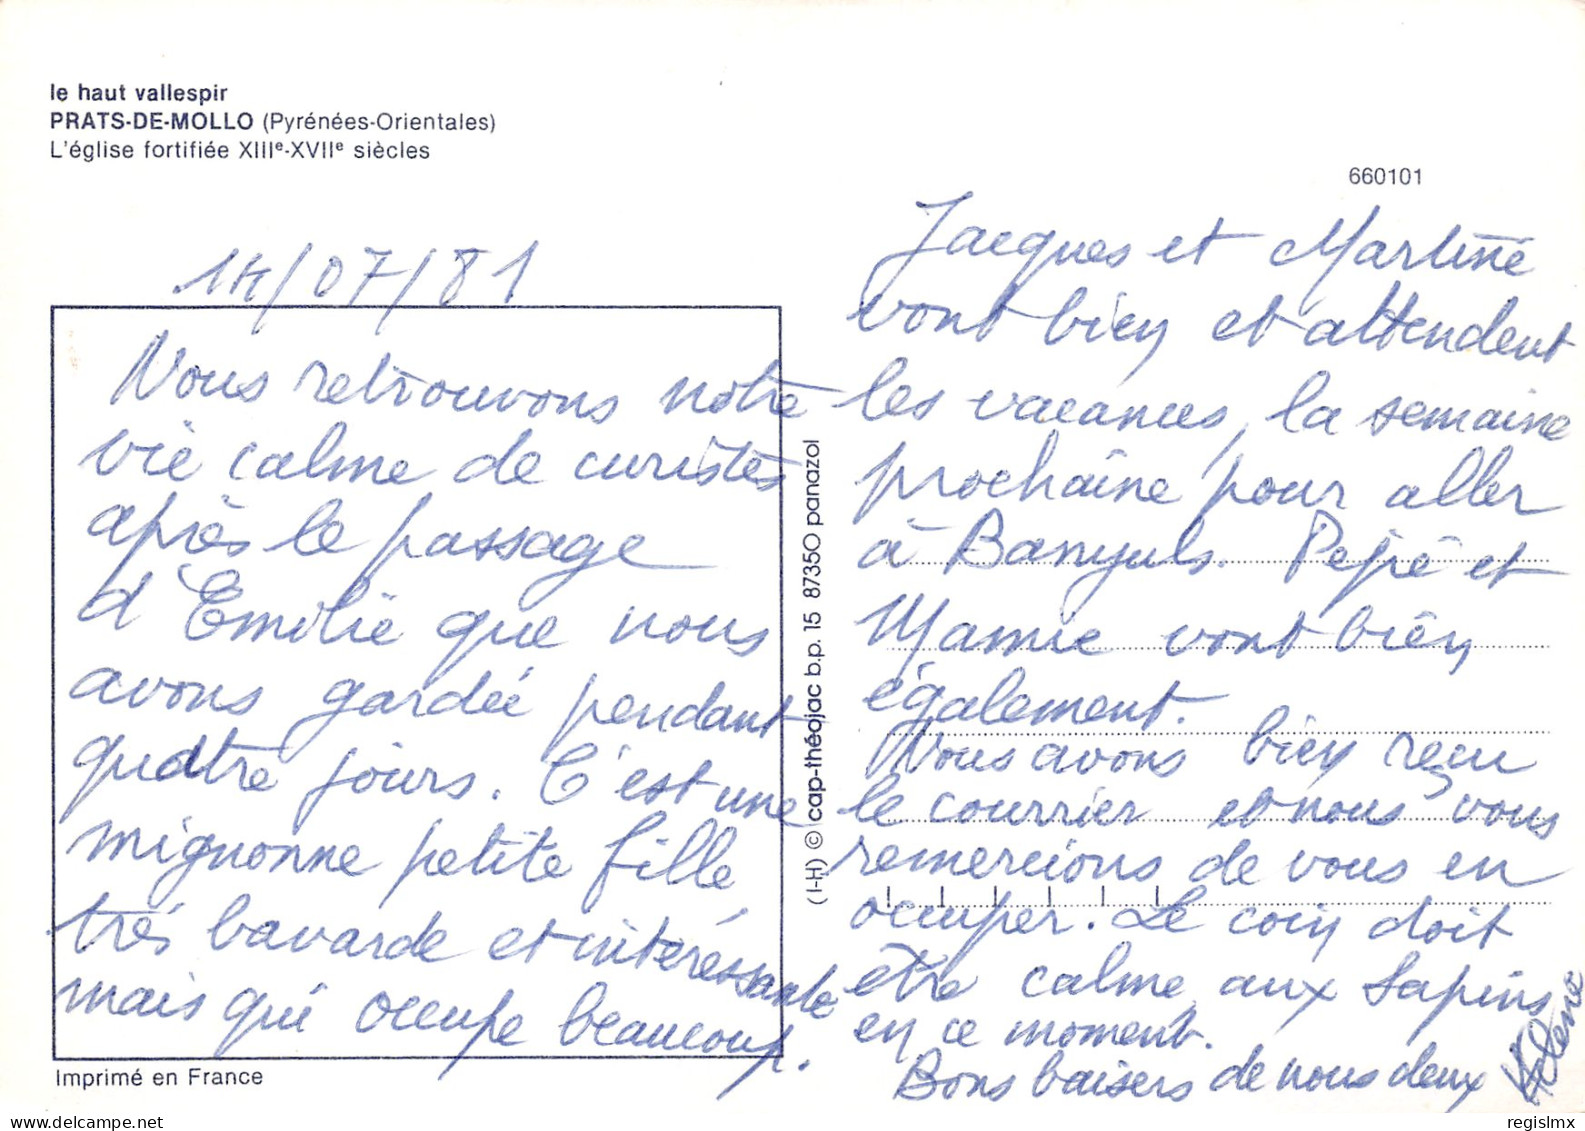 le haut vallespir
PRATS-DE-MOLLO (Pyrénées-Orientales)
L'église fortifiée XIIIe-XVIIe siècles
660101
14/07/81
Nous retrouvons notre
vie calme de curistes
après le passage
d'Emilie que nous
avons gardée pendant
quatre jours. C'est une
mignonne petite fille
très bavarde et intéressante
mais qui occupe beaucoup.
Imprimé en France
(I-H) © cap-théojac b.p. 15 87350 panazol
Jacques et Martine
vont bien et attendent
les vacances, la semaine
prochaine, pour aller
à Banyuls. Pépé et
Mamie vont bien
également.
Nous avons bien reçu
le courrier et nous vous
remercions de vous en
occuper. Le coin doit
être calme aux Sapins
en ce moment.
Bons baisers de nous deux
Hélène
regislmx